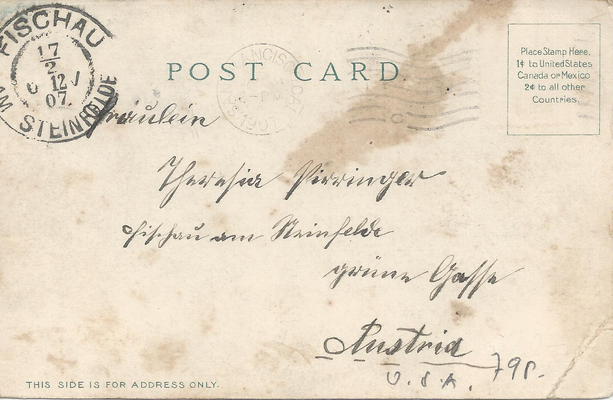 FISCHAU
17/2
12
07
AM STEINFELDE
POST CARD.
Place Stamp Here.
1¢ to United States
Canada or Mexico
2¢ to all other
Countries.
Fräulein
Theresia Pirringer
Fischau am Steinfelde
grüne Gasse
Austria
U.S.A. 798.
THIS SIDE IS FOR ADDRESS ONLY.